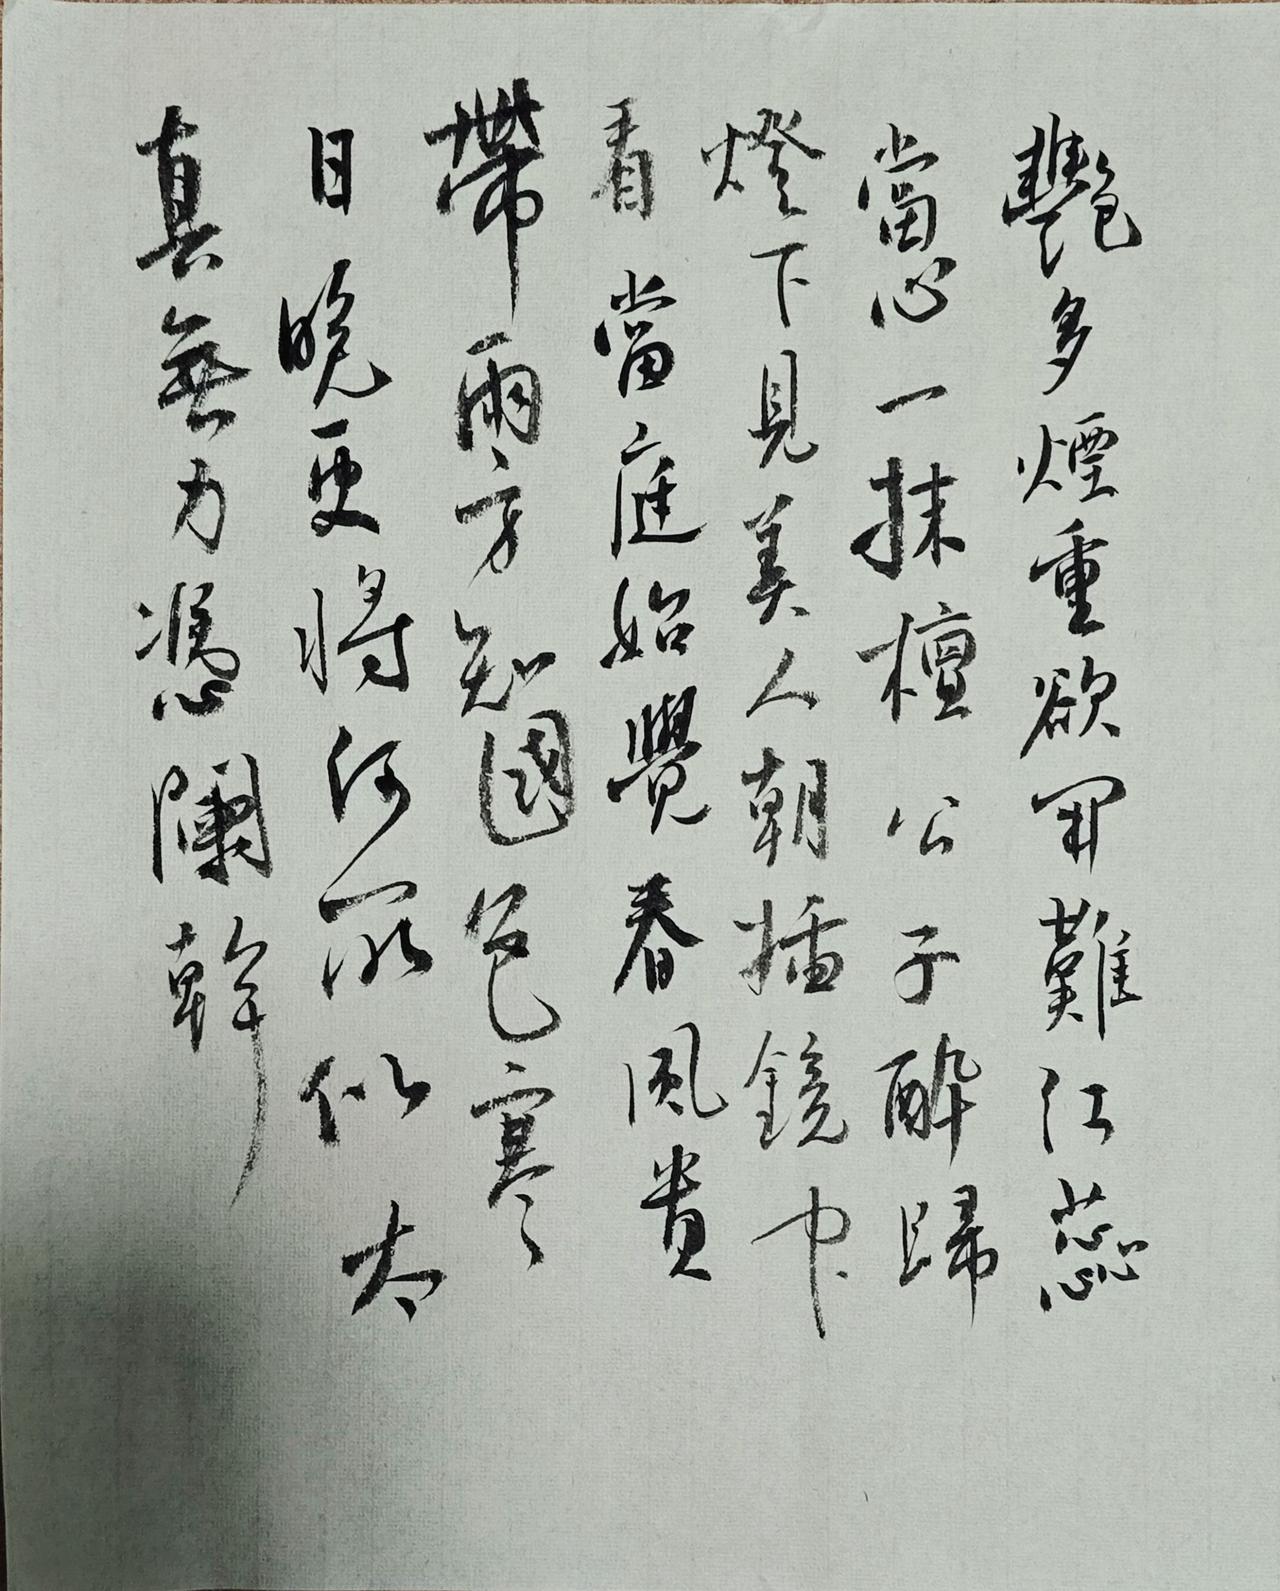 艷多煙重欲開難紅蕊
當心一抹檀公子醉歸
燈下見美人朝插鏡中
看當庭始覺春風貴
帶雨方知國色寒
日晚更將何所似太
真無力憑闌幹